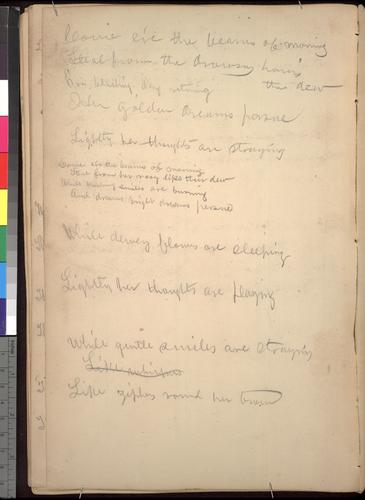 Come ere the beams of morning
Steal from the drowsy hours
the dew
Her golden dreams pursue
Lightly her thoughts are straying
Come ere the beams of morning
Steal from her rosy lips their dew
While smiles are burning
And dreams bright dreams pursue
While dewey flowers are sleeping
Lightly her thoughts are playing
While gentle smiles are straying
Like
Like zephrs round her brow